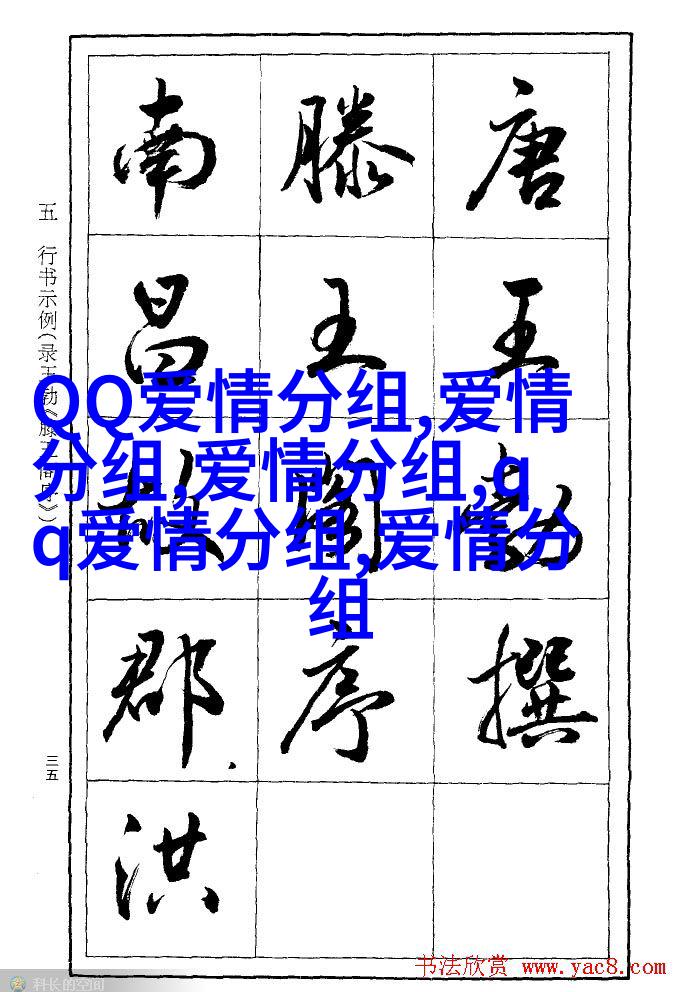 唐王勃撰
滕王阁序
南昌故郡洪
五 行书示例(录王勃《滕王阁序》)
三五
QQ爱情分组,爱情
分组,爱情分组,q
q爱情分组,爱情分
组
书法欣赏 www.yac8.com
科长的空间